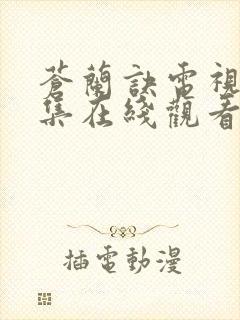 蒼蘭訣電視
集在綫觀看
插電動漫